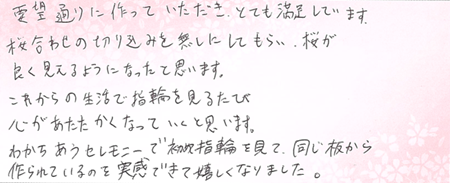 要望通りに作っていただき、とても満足しています。
桜合わせの切り込みを無しにしてもらい、桜が
良く見えるようになったと思います。
これからの生活で指輪を見るたび
心があたたかくなっていくと思います。
わかちあうセレモニーで初めて指輪を見て、同じ板から
作られているのを実感できて嬉しくなりました。